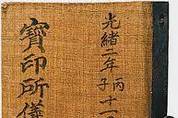 光緒二年丙子十一
寶印所儀